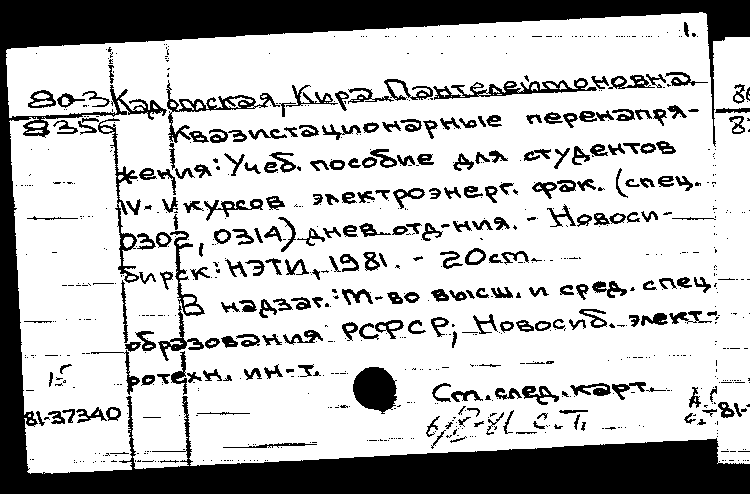 1.
80-3 Кадомская, Кира Пантелеймоновна.
8356 Квазистационарные перенапря-
жения: Учеб. пособие для студентов
IV-V курсов электроэнерг. фак. (спец.
0302, 0314) днев. отд-ния. - Новоси-
бирск: НЭТИ, 1981. - 20 см.
В надзаг.: М-во высш. и сред. спец.
образования РСФСР; Новосиб. элект-
ротехн. ин-т.
15
См. след. карт.
81-37340
6/X-81 С.Т.
81-